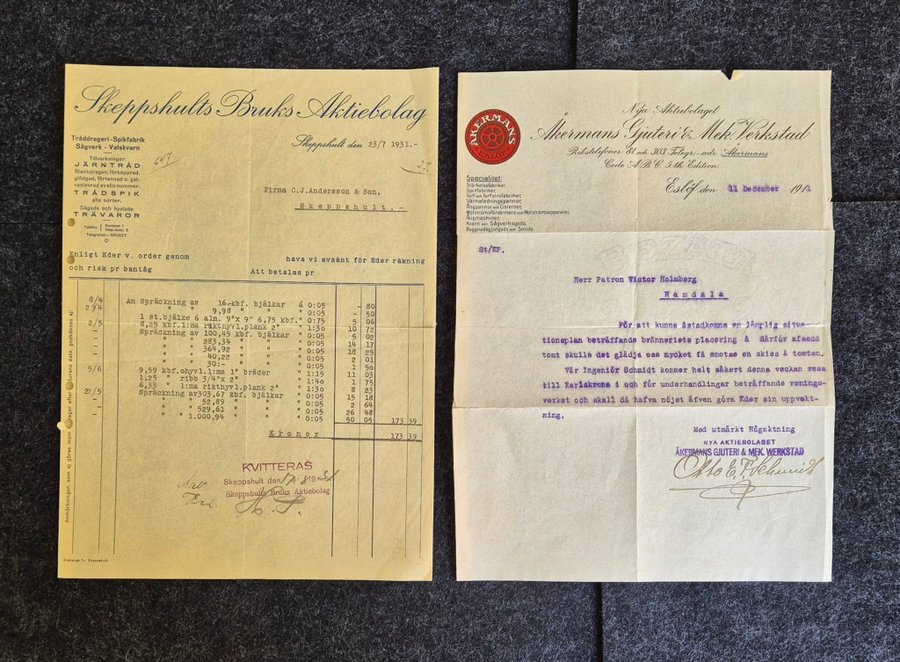 Skeppshults Bruks Aktiebolag
Tråddrageri-Spikfabrik
Sågverk - Valskvarn
Tillverkningar:
JÄRNTRÅD
Blankdragen, förkopprad,
glödgad, förtennad o. gal-
vaniserad av alla nummer.
TRÅDSPIK
alla sorter.
Sågade och hyvlade
TRÄVAROR
647
Skeppshult den 23/7 1931.-
Firma C.J.Andersson & Son,
Skeppshult.-
Enligt Eder v. order genom
hava vi avsänt för Eder räkning
och risk pr bantåg
Att betalas pr
8/4 An Spräckning av 16-kbf. bjälkar á 0:05 - 80
29/4 " " " 9,98 " " " 0:05 - 50
1 st.bjälke 6 aln. 9"x 9" 6,75 kbf." 0:75 5 06
2/5 8,25 kbf.1:ma rikthyvl.plank 2" " 1:30 10 72
- Spräckning av 100,45 kbf. bjälkar " 0:05 5 02
- " " 283,34 " " " 0:05 14 17
- " " 364,92 " " " 0:05 18 25
- " " 40,22 " " " 0:05 2 01
- " " 30:- " " " 0:05 1 50
5/6 9,59 kbf.ohyvl.1:ma 1" bräder " 1:15 11 03
- 1,25 " ribb 3/4"x 2" " 1:40 1 75
- 6,33 " 1:ma rikthyvl.plank 2" " 1:30 8 23
20/5 Spräckning av303,67 kbf. bjälkar " 0:05 15 18
- " " 52,89 " " " 0:05 2 64
- " " 529,61 " " " 0:05 26 48
- " " 1.000,94 " " " 0:05 50 05 173 39
Kronor 173 39
KVITTERAS
Skeppshult den 19
Skeppshults Bruks Aktiebolag
Nya Aktiebolaget
Åkermans Gjuteri & Mek. Verkstad
ÅKERMANS
ESLÖF
Rikstelefoner 31 och 303. Telegr.-adr. Åkermans
Code A.B.C. 5:th Edition.
Specialitet:
Stärkelsefabriker.
Spritfabriker.
Torf och Torfströfabriker.
Värmeledningspannor.
Ångpannor och Cisterner.
Motströmsförvärmare och Motströmsapparater.
Ångmaskiner.
Kvarn och Sågverksgods.
Byggnadsgjutgods och Smide.
Eslöf den 11 December 191
St/EP.
Herr Patron Victor Holmberg
Ramdala
För att kunna åstadkomma en lämplig situa-
tionsplan beträffande bränneriets placering å därför afsedd
tomt skulle det glädja oss mycket få emotse en skiss å tomten.
Vår Ingeniör Schmidt kommer helt säkert denna veckan resa
till Karlskrona i och för underhandlingar beträffande renings-
verket och skall då hafva nöjet äfven göra Eder sin uppvakt-
ning.
Med utmärkt Högaktning
NYA AKTIEBOLAGET
ÅKERMANS GJUTERI & MEK. WERKSTAD
Otto E. F. Schmidt